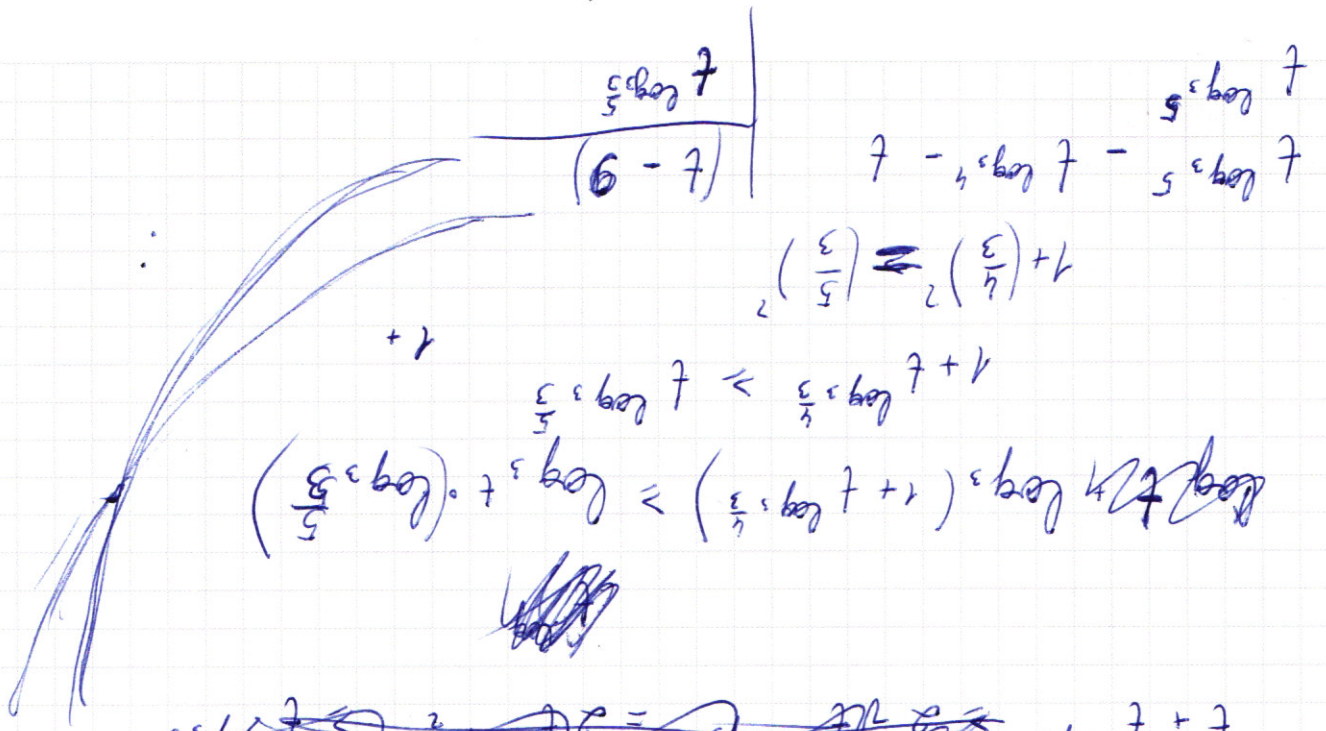 t + t
log₃(1 + t^{log₃ 4/3}) ≥ log₃ t · (log₃ 5/3)
1 + t^{log₃ 4/3} ≥ t^{log₃ 5/3}
1 +
1 + (4/3)² = (5/3)²
t^{log₃ 5} - t^{log₃ 4} - t
(t - 9)
t^{log₃ 5}
t^{log₃ 5/3}